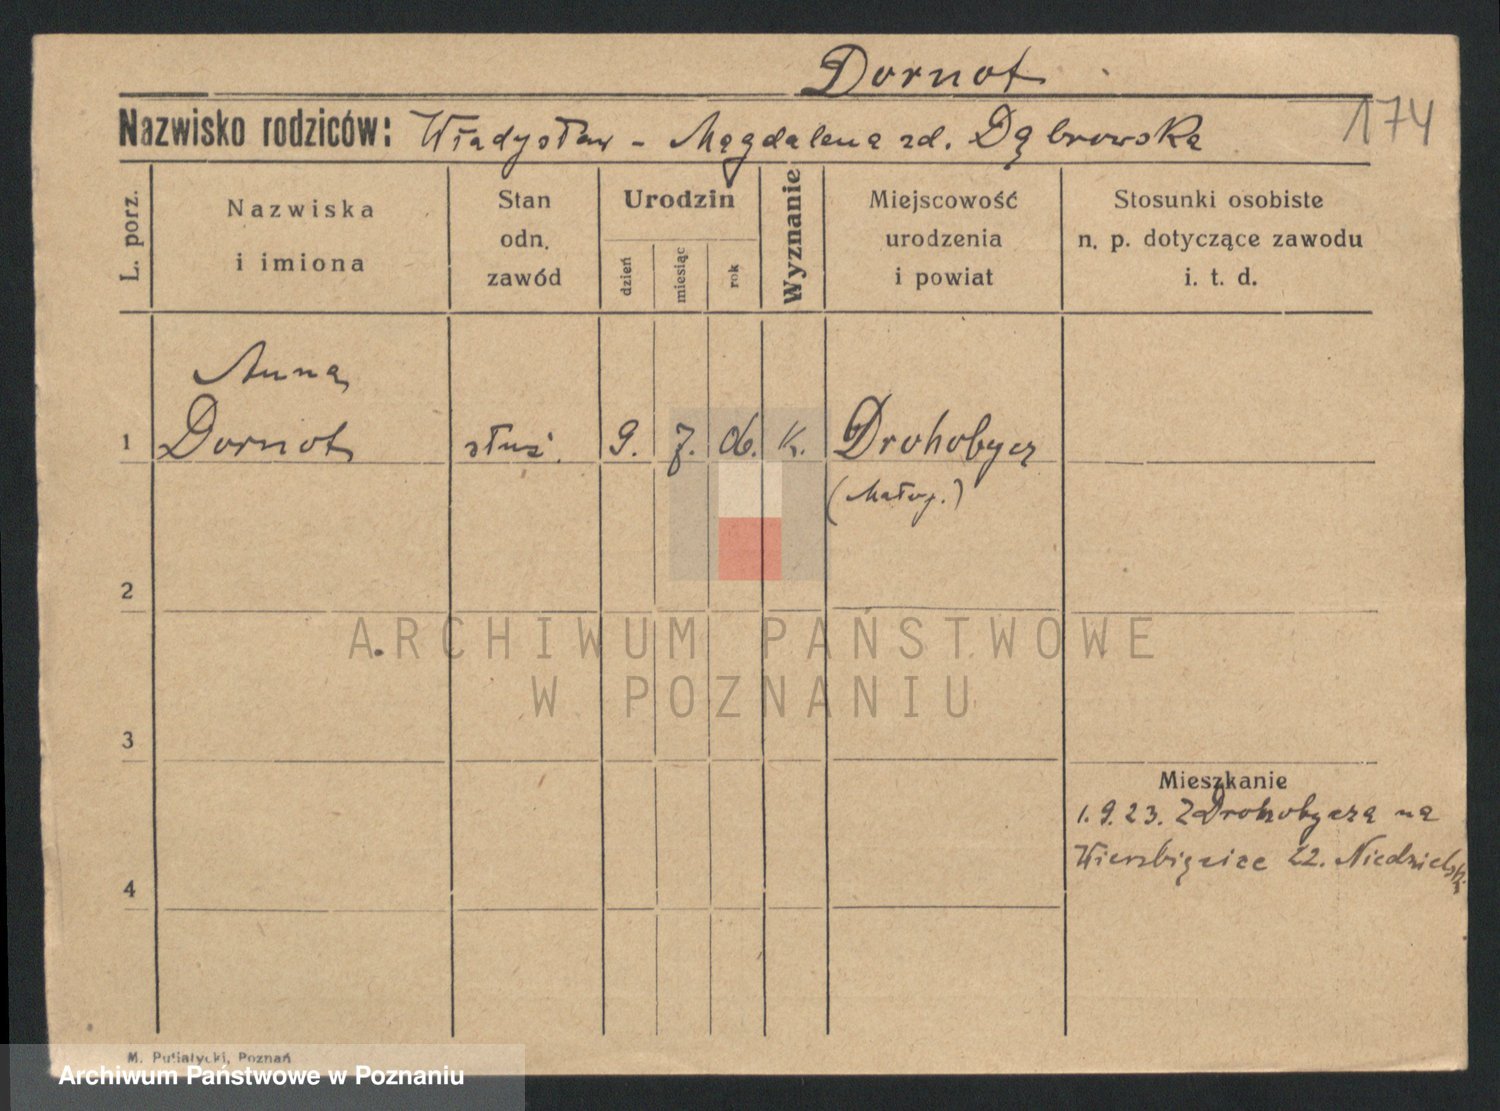 Dornot
174
Nazwisko rodziców: Władysław - Magdalena zd. Dąbrowska
L. porz.
Nazwiska
i imiona
Stan
odn.
zawód
Urodzin
dzień
miesiąc
rok
Wyznanie
Miejscowość
urodzenia
i powiat
Stosunki osobiste
n. p. dotyczące zawodu
i. t. d.
Anna
1 Dornot służ. 9. 7. 06. k. Drohobycz
(Małop.)
2
ARCHIWUM PAŃSTWOWE
W POZNANIU
3
Mieszkanie
1.9.23. Z Drohobycza na
Wierzbięcice 22. Niedzielski
4
M. Putiatycki, Poznań
Archiwum Państwowe w Poznaniu